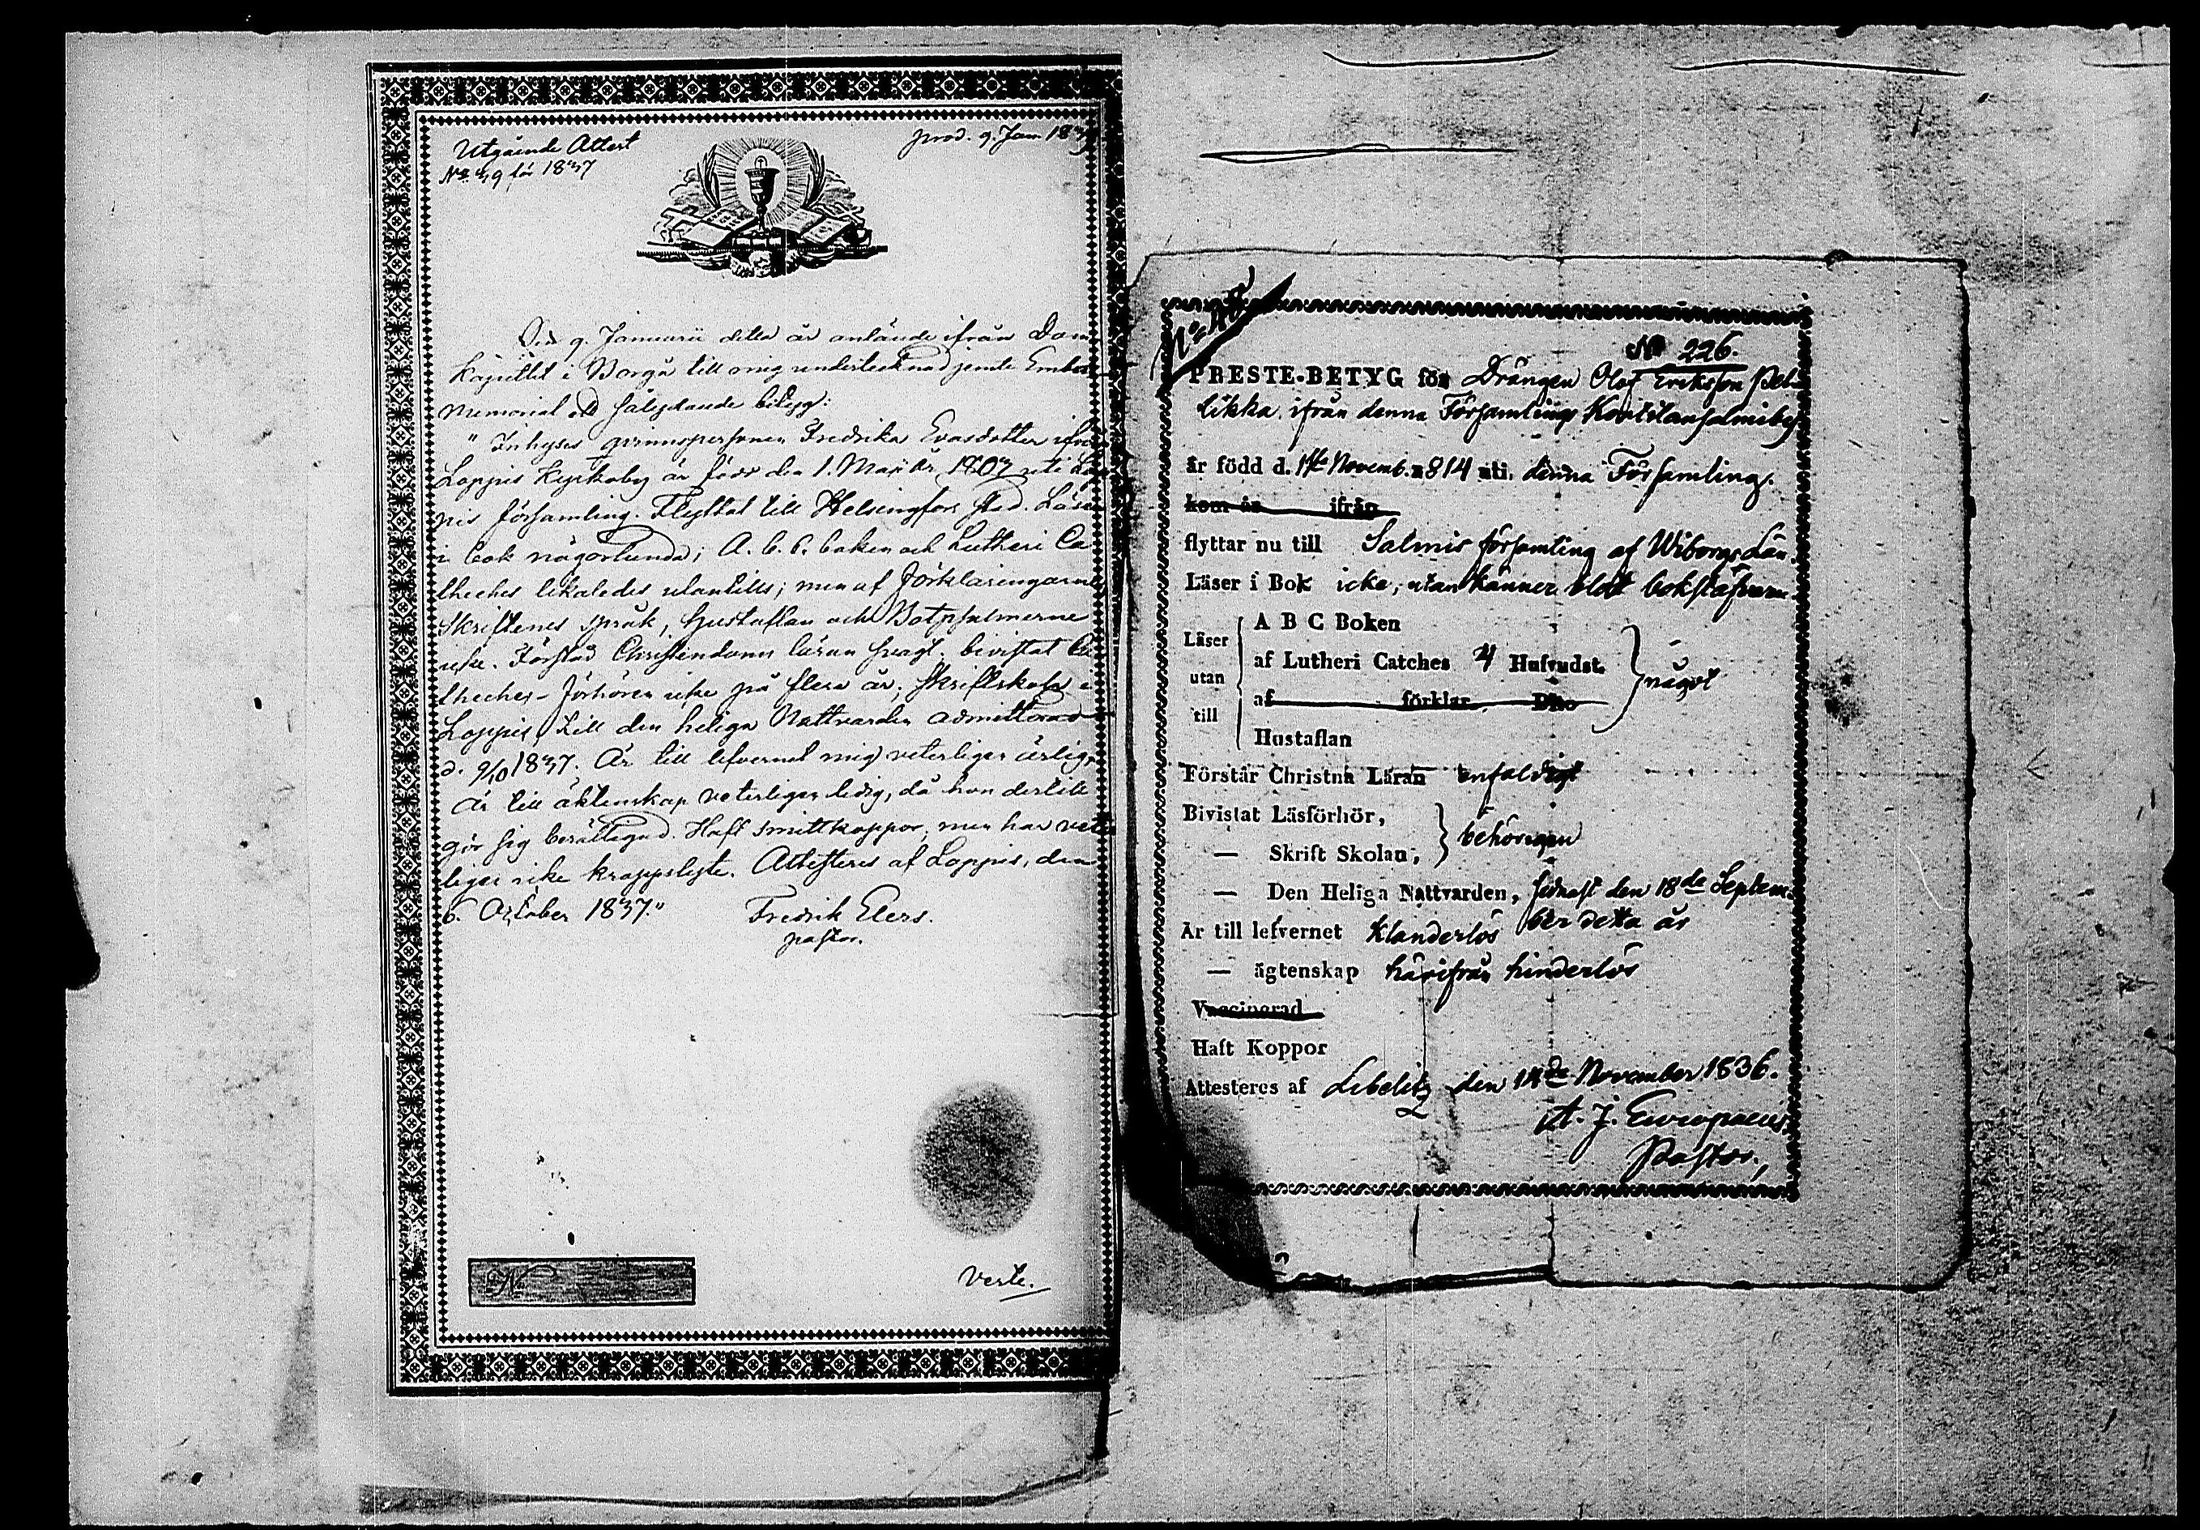 Utgående Attest
prod. 9. Jan 1839
No 39 för 1837
Den 9. Januarii detta år anlände ifrån Dom
Kapitlet i Borgå till mig undertecknad jemte Embets
Memorial ett följande betyg:
" Inhyses qvinnspersonen Fredrika Evasdotter ifrån
Loppis Kyrkoby är född den 1. Maji år 1807 uti Lop
pis församling. Flyttat till Helsingfors stad. Läser
i bok någorlunda; A. b. c. boken och Lutheri Ca
theches likaledes utantills; men af Förklaringarne
Skriftenes språk, Hustaflan och Botpsalmerne
icke. Förstår Christendoms läran svagt. bevistat Ca
theches-Förhören icke på flera år; Skriftskola i
Loppis, till den heliga Nattvarden admitterad
d. 9/10 1837. Är till lefvernet mig veterligen ärlig,
Är till äktenskap veterligen ledig, då hon dertill
gör sig berättigad. Haft smittkoppor, men har veter
ligen icke kroppslyte. Attesteres af Loppis, den
6. October 1837."
Fredrik Elers.
pastor.
No
Verte.
No 226.
PRESTE-BETYG för Drängen Olof Eriksson Pel
likka ifrån denna Församlings Kontilansalmi by
är född d. 14de Novemb. 1814 uti denna Församling.
kom år ifrån
flyttar nu till Salmis församling af Wiborgs Län
Läser i Bok icke, utan känner blott bokstäfverne
Läser
utan
till
A B C Boken
af Lutheri Catches 4 Hufvudst.
af förklar. Dito
Hustaflan
något
Förstår Christna Läran enfaldigt
Bivistat Läsförhör,
— Skrift Skolan,
behörigen
— Den Heliga Nattvarden, sednast den 18de Septem
ber detta år
Är till lefvernet klanderlös
— ägtenskap härifrån hinderlös
Vaccinerad
Haft Koppor
Attesteres af Libelitz den 14de November 1836.
A. J. Europaeus
Pastor.